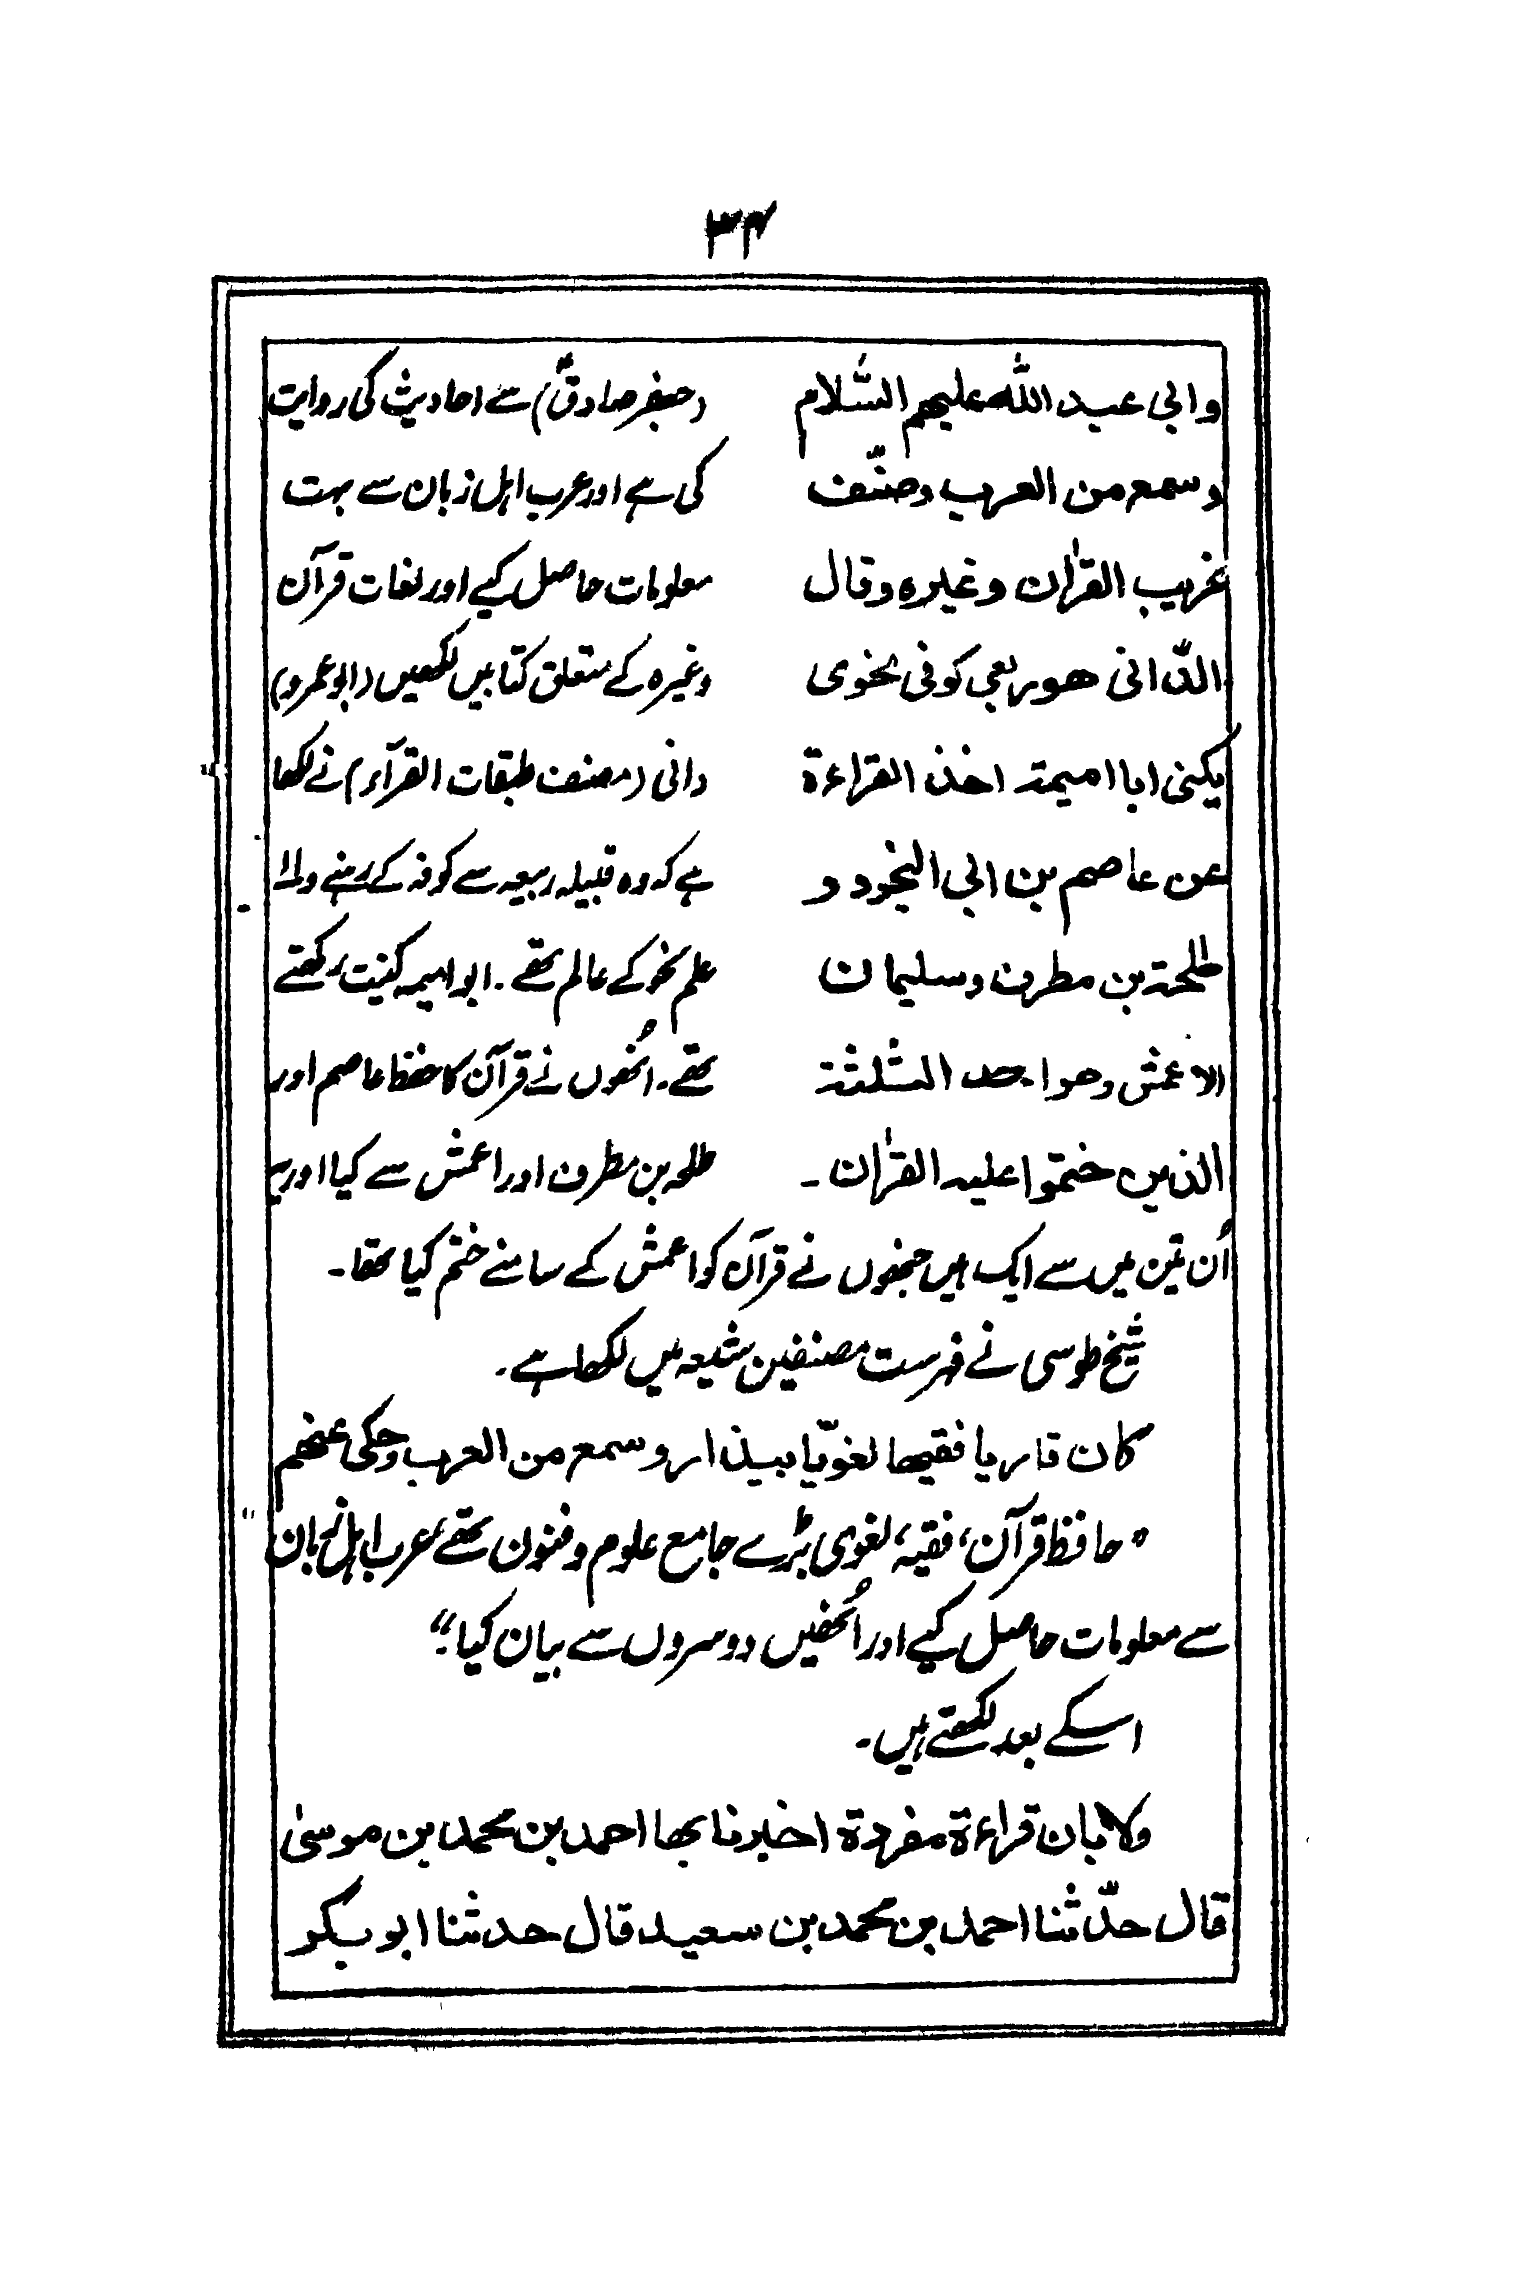 ۳۴
وابی عبد اللہ علیہم السّلام
وسمع من العرب وصنّف
غریب القرٰان وغیرہ وقال
الدّانی ھو ربعی کوفی نحوی
یکنی ابا امیمۃ اخذ القراءۃ
عن عاصم بن ابی النجود و
طلحۃ بن مطرف وسلیمان
الاعمش وھو احد الثلثۃ
الذین ختموا علیہ القرٰان ۔
(جعفر صادقؑ) سے احادیث کی روایت
کی ہے اور عرب اہل زبان سے بہت
معلومات حاصل کیے اور لغات قرآن
وغیرہ کے متعلق کتابیں لکھیں (ابوعمرو)
دانی (مصنف طبقات القرآء) نے لکھا
ہے کہ وہ قبیلہ ربیعہ سے کوفہ کے رہنے والا
علم نحو کے عالم تھے۔ ابو امیمہ کنیت رکھتے
تھے۔ اُنھوں نے قرآن کا حفظ عاصم اور
طلحہ بن مطرف اور اعمش سے کیا اور یہ
اُن تین میں سے ایک ہیں جنھوں نے قرآن کو اعمش کے سامنے ختم کیا تھا۔
شیخ طوسی نے فہرست مصنفین شیعہ میں لکھا ہے۔
کان قاریا فقیھا لغویّا بیذار وسمع من العرب وحکی عنھم
" حافظ قرآن، فقیہ، لغوی بڑے جامع علوم و فنون تھے، عرب اہل زبان
سے معلومات حاصل کیے اور اُنھیں دوسروں سے بیان کیا۔"
اسکے بعد لکھتے ہیں۔
ولابان قراءۃ مفردۃ اخبرنا بھا احمد بن محمد بن موسیٰ
قال حدّثنا احمد بن محمد بن سعید قال حدثنا ابو بکر